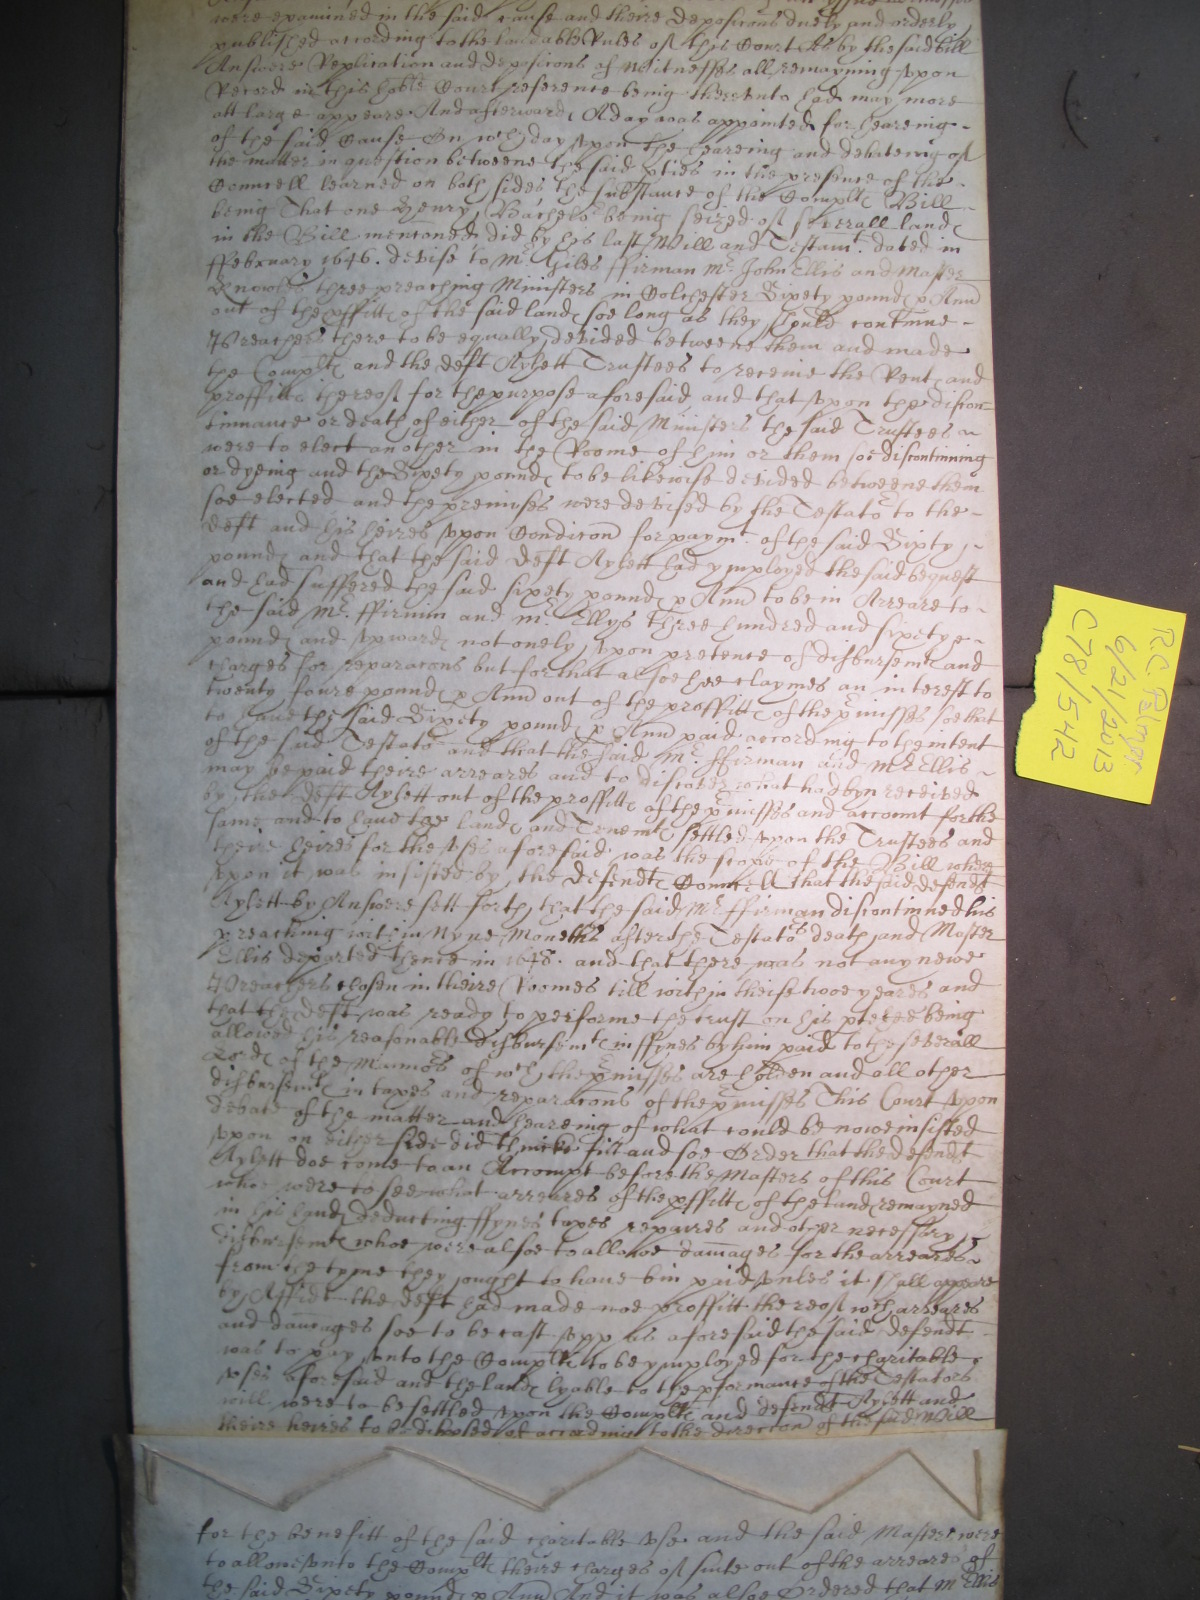 were examined in the said cause and theire deposicons duely and orderly
published according to the laudable Rules of this Court As by the said bill
Answere Replication and deposicons of Witnesses all remayning upon
Record in this hoble Court reference being thereunto had may more
att large appeare And afterward A day was appointed for heareing
of the said Cause On wch day upon the heareing and debateing of
the matter in question betweene the said pties in the presence of the
Councell learned on both sides the substance of the Complts Bill
being That one Henry Bachelor being seized of severall land
in the Bill menconed did by his last Will and Testamt dated in
ffebruary 1646. devise to Mr Giles ffirman Mr John Ellis and Master
Knowles three preaching Ministers in Colchester Sixety pound p Ann
out of the pffitt of the said land soe long as they should continue
Preachers there to be equally devided betweene them and made
the Complt and the deft Aylett Trustees to receive the Rent and
proffitt thereof for the purpose aforesaid and that upon the discon
tinuance or death of either of the said Ministers the said Trustees
were to elect another in the Roome of him or them soe discontinuing
or dyeing and the Sixety pound to be likewise devided betweene them
soe elected and the premises were devised by the Testator to the
deft and his heires upon Condicon for paymt of the said Sixty
pound and that the said deft Aylett had ymployed the said bequest
and had suffered the said sixety pound p Ann to be in Arreare to
the said Mr. ffirmin and mr Ellys three hundred and sixety
pound and upward not onely upon pretence of disbursemt and
charges for reparacons but for that alsoe hee claymes an interest to
twenty foure pound p Ann out of the proffitt of the pmisses soe that
to have the said Sixety pound p Ann paid according to the intent
of the said Testator and that the said Mr ffirman and Mr Ellis
may be paid theire arreares and to discover what had byn received
by the deft Aylett out of the proffitt of the pmisses and account for the
same and to have the land and Tenemt settled upon the Trustees and
theire heires for the uses aforesaid was the scope of the Bill where
upon it was insisted by the defendt Councell that the said defendt
Aylett by Answere sett forth that the said Mr ffirman discontinued his
preaching within Nyne Moneths after the Testators death and Master
Ellis departed thence in 1648. and that there was not any newe
Preachers chosen in theire Roomes till within theise twoe yeares and
that the deft was ready to performe the trust on his pte hee being
allowed his reasonable disbursemt in ffynes by him paid to the severall
Lord of the Mannors of wch the pmisses are holden and all other
disbursemt in taxes and reparacons of the pmisses This Court upon
debate of the matter and heareing of what could be nowe insisted
upon on either side did thincke fitt and soe Order that the defendt
Aylett doe come to an Accompt before the Masters of this Court
whoe were to see what arreares of the pffitt of the land remayned
in his hand deducting ffynes taxes repaires and other necessary
disbursemt whoe were alsoe to allowe damages for the arreares
from the tyme they ought to have bin paid unles it shall appeare
by Affidt the deft had made noe proffitt thereof wch arreares
and damages soe to be cast upp as aforesaid the said defendt
was to pay unto the Complt to be ymployed for the charitable
uses aforesaid and the land lyable to the pformance of the Testators
will were to be settled upon the Complt and defendt Aylett and
theire heires to be disposed of according to the direccon of the said Will
for the benefitt of the said charitable use and the said Masters were
to allowe unto the Complt theire charges of suite out of the arreares of
the said Sixety pound p Ann And it was alsoe Ordered that Mr Ellis
R.C. Palmer
6/21/2013
C78/542